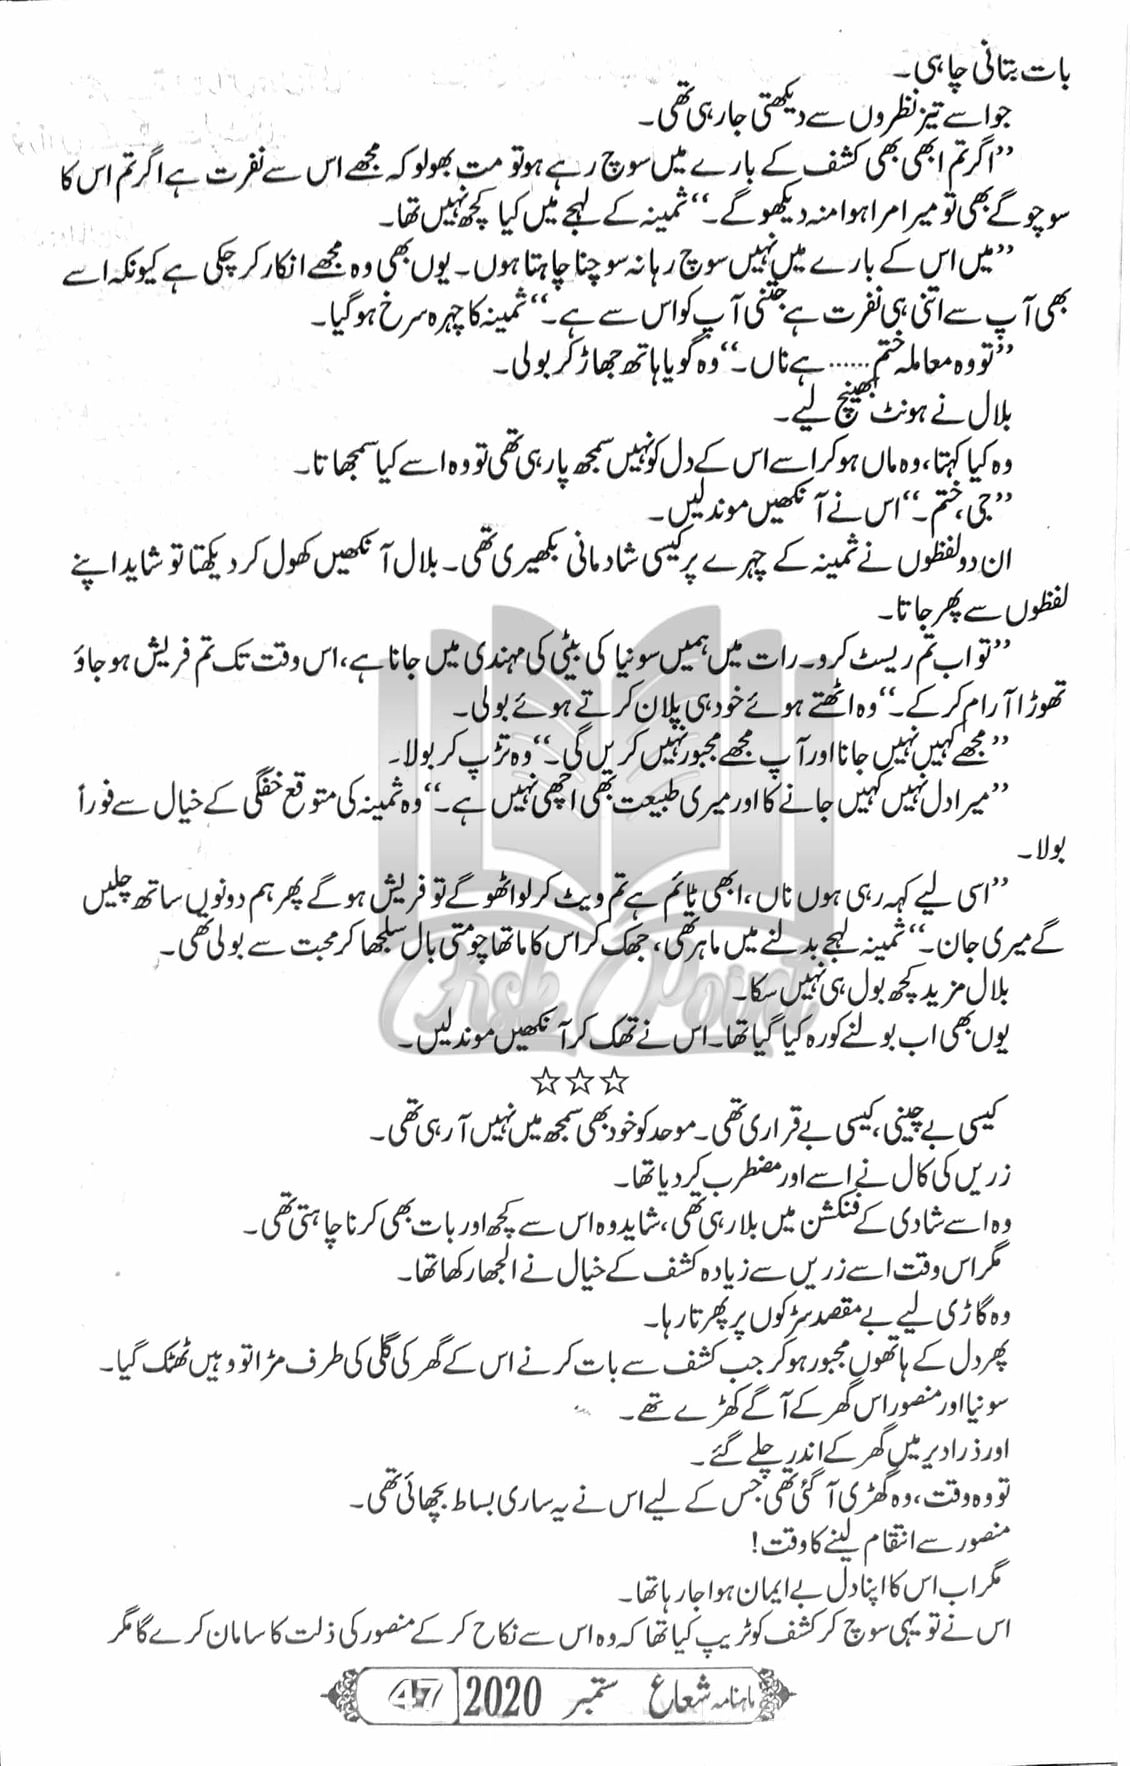 بات بتانی چاہی۔
جو اسے تیز نظروں سے دیکھتی جا رہی تھی۔
’’اگر تم ابھی بھی کشف کے بارے میں سوچ رہے ہو تو مت بھولو کہ مجھے اس سے نفرت ہے اگر تم اس کا
سوچو گے بھی تو میرا مرا ہوا منہ دیکھو گے۔‘‘ ثمینہ کے لہجے میں کیا کچھ نہیں تھا۔
’’میں اس کے بارے میں نہیں سوچ رہا نہ سوچنا چاہتا ہوں۔ یوں بھی وہ مجھے انکار کر چکی ہے کیونکہ اسے
بھی آپ سے اتنی ہی نفرت ہے جتنی آپ کو اس سے ہے۔‘‘ ثمینہ کا چہرہ سرخ ہو گیا۔
’’تو وہ معاملہ ختم...... ہے ناں۔‘‘ وہ گویا ہاتھ جھاڑ کر بولی۔
بلال نے ہونٹ بھینچ لیے۔
وہ کیا کہتا، وہ ماں ہو کر اسے اس کے دل کو نہیں سمجھ پا رہی تھی تو وہ اسے کیا سمجھاتا۔
’’جی، ختم۔‘‘ اس نے آنکھیں موند لیں۔
ان دو لفظوں نے ثمینہ کے چہرے پر کیسی شادمانی بکھیری تھی۔ بلال آنکھیں کھول کر دیکھتا تو شاید اپنے
لفظوں سے پھر جاتا۔
’’تو اب تم ریسٹ کرو۔ رات میں ہمیں سونیا کی بیٹی کی مہندی میں جانا ہے، اس وقت تک تم فریش ہو جاؤ
تھوڑا آرام کر کے۔‘‘ وہ اٹھتے ہوئے خود ہی پلان کرتے ہوئے بولی۔
’’مجھے کہیں نہیں جانا اور آپ مجھے مجبور نہیں کریں گی۔‘‘ وہ تڑپ کر بولا۔
’’میرا دل نہیں کہیں جانے کا اور میری طبیعت بھی اچھی نہیں ہے۔‘‘ وہ ثمینہ کی متوقع خفگی کے خیال سے فوراً
بولا۔
’’اسی لیے کہہ رہی ہوں ناں، ابھی ٹائم ہے تم ویٹ کر لو اٹھو گے تو فریش ہو گے پھر ہم دونوں ساتھ چلیں
گے میری جان۔‘‘ ثمینہ لہجے بدلنے میں ماہر تھی، جھک کر اس کا ماتھا چومتی بال سلجھا کر محبت سے بولی تھی۔
بلال مزید کچھ بول ہی نہیں سکا۔
یوں بھی اب بولنے کو رہ کیا گیا تھا۔ اس نے تھک کر آنکھیں موند لیں۔
☆☆☆
کیسی بے چینی، کیسی بے قراری تھی۔ موحد کو خود بھی سمجھ میں نہیں آ رہی تھی۔
زریں کی کال نے اسے اور مضطرب کر دیا تھا۔
وہ اسے شادی کے فنکشن میں بلا رہی تھی، شاید وہ اس سے کچھ اور بات بھی کرنا چاہتی تھی۔
مگر اس وقت اسے زریں سے زیادہ کشف کے خیال نے الجھا رکھا تھا۔
وہ گاڑی لیے بے مقصد سڑکوں پر پھرتا رہا۔
پھر دل کے ہاتھوں مجبور ہو کر جب کشف سے بات کرنے اس کے گھر کی گلی کی طرف مڑا تو وہیں ٹھٹک گیا۔
سونیا اور منصور اس گھر کے آگے کھڑے تھے۔
اور ذرا دیر میں گھر کے اندر چلے گئے۔
تو وہ وقت، وہ گھڑی آ گئی تھی جس کے لیے اس نے یہ ساری بساط بچھائی تھی۔
منصور سے انتقام لینے کا وقت!
مگر اب اس کا اپنا دل بے ایمان ہوا جا رہا تھا۔
اس نے تو یہی سوچ کر کشف کو ٹریپ کیا تھا کہ وہ اس سے نکاح کر کے منصور کی ذلت کا سامان کرے گا مگر
ماہنامہ شعاع ستمبر 2020 47
Ask Point